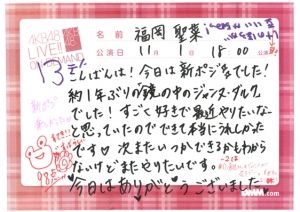 AKB48
LIVE!!
ON DEMAND
名前
福岡 聖菜
公演日
11月1日 18:00公演
13
こんばんは！今日は新ポジでした！
約1年ぶりの鏡の中のジャンヌ・ダルク
でした！すごく好きで最近やりたいな～
と思っていたのでできて本当にうれしかった
です♡ 次またいつかできるかもわから
ないけどまたやりたいです。
今日はありがとうございました
DMM.com